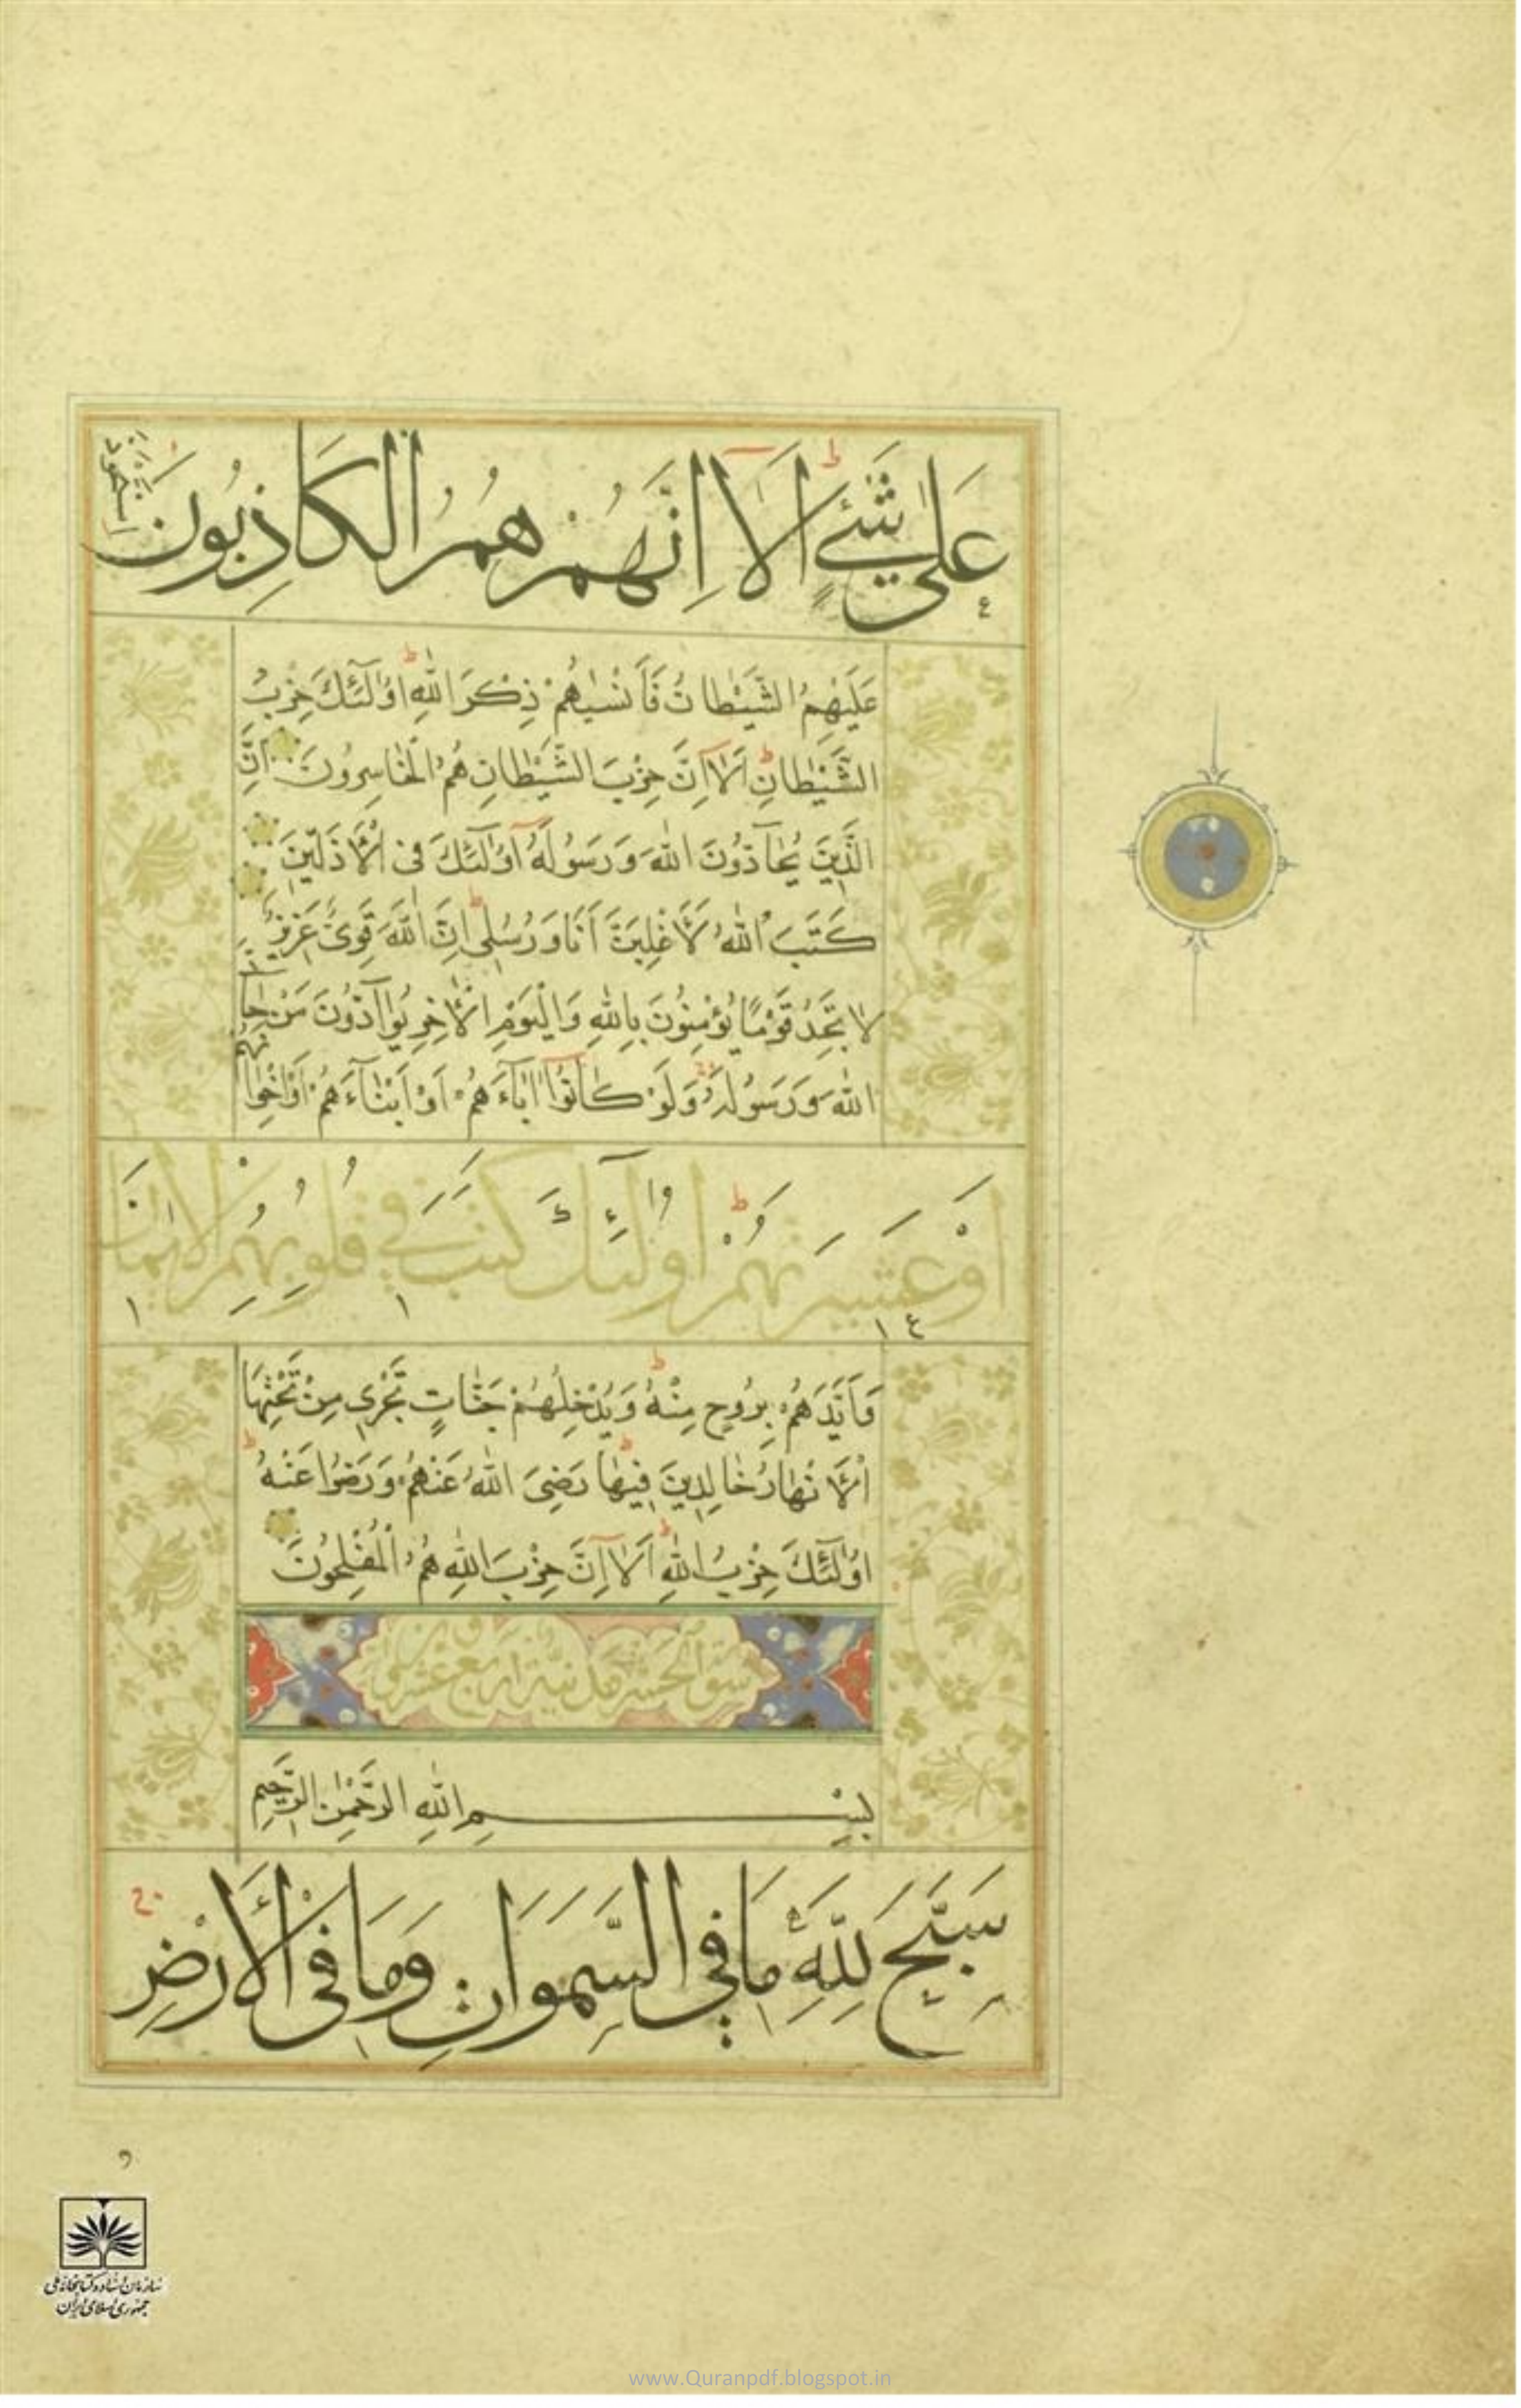 عَلىٰ شَيْءٍ اَلَا اِنَّهُمْ هُمُ الْكَاذِبُونَ اِسْتَحْوَذَ
عَلَيْهِمُ الشَّيْطَانُ فَاَنْسٰيهُمْ ذِكْرَ اللّٰهِ اُولٰٓئِكَ حِزْبُ
الشَّيْطَانِ اَلَآ اِنَّ حِزْبَ الشَّيْطَانِ هُمُ الْخَاسِرُونَ اِنَّ
الَّذِينَ يُحَآدُّونَ اللّٰهَ وَرَسُولَهُ اُولٰٓئِكَ فِى الْاَذَلّينَ
كَتَبَ اللّٰهُ لَاَغْلِبَنَّ اَنَا وَرُسُلى اِنَّ اللّٰهَ قَوِىٌّ عَزِيزٌ
لَا تَجِدُ قَوْمًا يُؤْمِنُونَ بِاللّٰهِ وَالْيَوْمِ الْاٰخِرِ يُوَآدُّونَ مَنْ حَآدَّ
اللّٰهَ وَرَسُولَهُ وَلَوْ كَانُوٓا اٰبَآءَهُمْ اَوْ اَبْنَآءَهُمْ اَوْ اِخْوَانَهُمْ
اَوْ عَشِيرَتَهُمْ اُولٰٓئِكَ كَتَبَ فِي قُلُوبِهِمُ الْاِيمَانَ
وَاَيَّدَهُمْ بِرُوحٍ مِنْهُ وَيُدْخِلُهُمْ جَنَّاتٍ تَجْرِى مِنْ تَحْتِهَا
الْاَنْهَارُ خَالِدِينَ فِيهَا رَضِىَ اللّٰهُ عَنْهُمْ وَرَضُوا عَنْهُ
اُولٰٓئِكَ حِزْبُ اللّٰهِ اَلَآ اِنَّ حِزْبَ اللّٰهِ هُمُ الْمُفْلِحُونَ
سورة الحشر مدنية اربع عشرون
بِسْمِ اللّٰهِ الرَّحْمٰنِ الرَّحِيمِ
سَبَّحَ لِلّٰهِ مَا فِي السَّمَوَاتِ وَمَا فِى الْاَرْضِ
سازمان اسناد و کتابخانه ملی
جمهوری اسلامی ایران
www.Quranpdf.blogspot.in